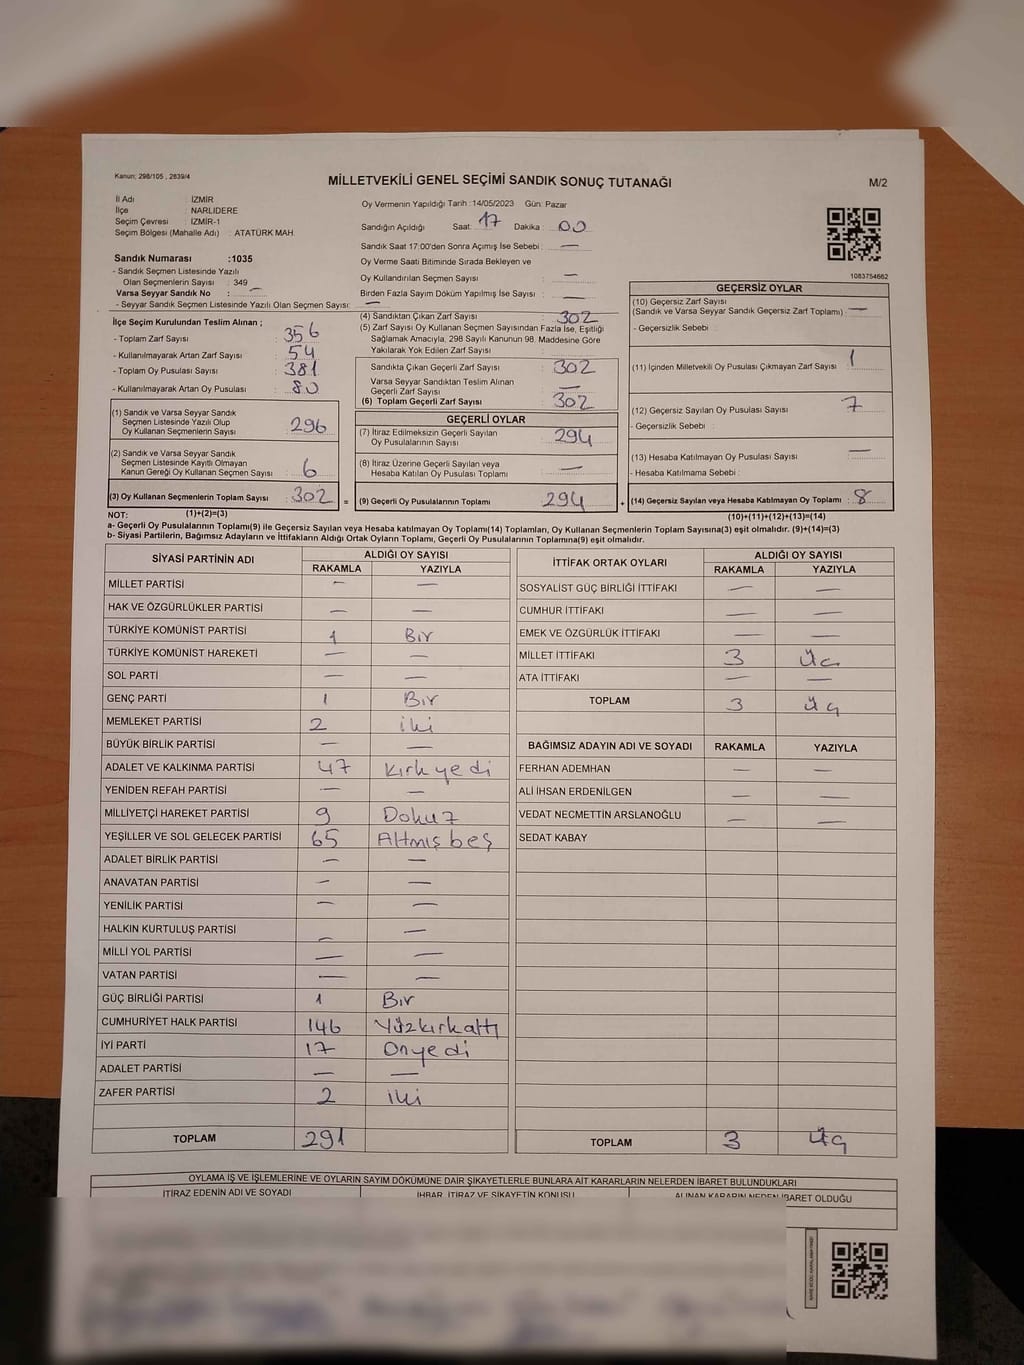 Kanun; 298/105 , 2839/4
MİLLETVEKİLİ GENEL SEÇİMİ SANDIK SONUÇ TUTANAĞI
M/2
İl Adı : İZMİR
İlçe : NARLIDERE
Seçim Çevresi : İZMİR-1
Seçim Bölgesi (Mahalle Adı) : ATATÜRK MAH.
Oy Vermenin Yapıldığı Tarih :14/05/2023 Gün: Pazar
Sandığın Açıldığı Saat: 17 Dakika : 00
Sandık Saat 17:00'den Sonra Açımış İse Sebebi : —
Oy Verme Saati Bitiminde Sırada Bekleyen ve
Oy Kullandırılan Seçmen Sayısı : —
Birden Fazla Sayım Döküm Yapılmış İse Sayısı : —
Sandık Numarası :1035
- Sandık Seçmen Listesinde Yazılı
Olan Seçmenlerin Sayısı : 349
Varsa Seyyar Sandık No : —
- Seyyar Sandık Seçmen Listesinde Yazılı Olan Seçmen Sayısı: —
1083754662
İlçe Seçim Kurulundan Teslim Alınan ;
- Toplam Zarf Sayısı : 356
- Kullanılmayarak Artan Zarf Sayısı : 54
- Toplam Oy Pusulası Sayısı : 381
- Kullanılmayarak Artan Oy Pusulası : 80
(1) Sandık ve Varsa Seyyar Sandık
Seçmen Listesinde Yazılı Olup
Oy Kullanan Seçmenlerin Sayısı : 296
(2) Sandık ve Varsa Seyyar Sandık
Seçmen Listesinde Kayıtlı Olmayan
Kanun Gereği Oy Kullanan Seçmen Sayısı : 6
(3) Oy Kullanan Seçmenlerin Toplam Sayısı : 302 =
(4) Sandıktan Çıkan Zarf Sayısı : 302
(5) Zarf Sayısı Oy Kullanan Seçmen Sayısından Fazla İse, Eşitliği
Sağlamak Amacıyla, 298 Sayılı Kanunun 98. Maddesine Göre
Yakılarak Yok Edilen Zarf Sayısı :
Sandıkta Çıkan Geçerli Zarf Sayısı : 302
Varsa Seyyar Sandıktan Teslim Alınan
Geçerli Zarf Sayısı : —
(6) Toplam Geçerli Zarf Sayısı : 302
GEÇERLİ OYLAR
(7) İtiraz Edilmeksizin Geçerli Sayılan
Oy Pusulalarının Sayısı : 294
(8) İtiraz Üzerine Geçerli Sayılan veya
Hesaba Katılan Oy Pusulası Toplamı : —
(9) Geçerli Oy Pusulalarının Toplamı : 294 +
GEÇERSİZ OYLAR
(10) Geçersiz Zarf Sayısı
(Sandık ve Varsa Seyyar Sandık Geçersiz Zarf Toplamı) : —
- Geçersizlik Sebebi :
(11) İçinden Milletvekili Oy Pusulası Çıkmayan Zarf Sayısı : 1
(12) Geçersiz Sayılan Oy Pusulası Sayısı : 7
- Geçersizlik Sebebi :
(13) Hesaba Katılmayan Oy Pusulası Sayısı : —
- Hesaba Katılmama Sebebi :
(14) Geçersiz Sayılan veya Hesaba Katılmayan Oy Toplamı : 8
NOT: (1)+(2)=(3)
(10)+(11)+(12)+(13)=(14)
a- Geçerli Oy Pusulalarının Toplamı(9) ile Geçersiz Sayılan veya Hesaba katılmayan Oy Toplamı(14) Toplamları, Oy Kullanan Seçmenlerin Toplam Sayısına(3) eşit olmalıdır. (9)+(14)=(3)
b- Siyasi Partilerin, Bağımsız Adayların ve İttifakların Aldığı Ortak Oyların Toplamı, Geçerli Oy Pusulalarının Toplamına(9) eşit olmalıdır.
SİYASİ PARTİNİN ADI ALDIĞI OY SAYISI
RAKAMLA YAZIYLA
MİLLET PARTİSİ — —
HAK VE ÖZGÜRLÜKLER PARTİSİ — —
TÜRKİYE KOMÜNİST PARTİSİ 1 Bir
TÜRKİYE KOMÜNİST HAREKETİ — —
SOL PARTİ — —
GENÇ PARTİ 1 Bir
MEMLEKET PARTİSİ 2 iki
BÜYÜK BİRLİK PARTİSİ — —
ADALET VE KALKINMA PARTİSİ 47 Kırkyedi
YENİDEN REFAH PARTİSİ — —
MİLLİYETÇİ HAREKET PARTİSİ 9 Dokuz
YEŞİLLER VE SOL GELECEK PARTİSİ 65 Altmışbeş
ADALET BİRLİK PARTİSİ — —
ANAVATAN PARTİSİ — —
YENİLİK PARTİSİ — —
HALKIN KURTULUŞ PARTİSİ — —
MİLLİ YOL PARTİSİ — —
VATAN PARTİSİ — —
GÜÇ BİRLİĞİ PARTİSİ 1 Bir
CUMHURİYET HALK PARTİSİ 146 Yüzkırkaltı
İYİ PARTİ 17 Onyedi
ADALET PARTİSİ — —
ZAFER PARTİSİ 2 iki
TOPLAM 291
İTTİFAK ORTAK OYLARI ALDIĞI OY SAYISI
RAKAMLA YAZIYLA
SOSYALİST GÜÇ BİRLİĞİ İTTİFAKI — —
CUMHUR İTTİFAKI — —
EMEK VE ÖZGÜRLÜK İTTİFAKI — —
MİLLET İTTİFAKI 3 Üç
ATA İTTİFAKI — —
TOPLAM 3 Üç
BAĞIMSIZ ADAYIN ADI VE SOYADI RAKAMLA YAZIYLA
FERHAN ADEMHAN — —
ALİ İHSAN ERDENİLGEN — —
VEDAT NECMETTİN ARSLANOĞLU — —
SEDAT KABAY
TOPLAM 3 Üç
OYLAMA İŞ VE İŞLEMLERİNE VE OYLARIN SAYIM DÖKÜMÜNE DAİR ŞİKAYETLERLE BUNLARA AİT KARARLARIN NELERDEN İBARET BULUNDUKLARI
İTİRAZ EDENİN ADI VE SOYADI İHBAR, İTİRAZ VE ŞİKAYETİN KONUSU ALINAN KARARIN NEDEN İBARET OLDUĞU